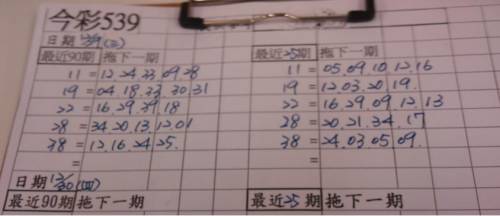 今彩539
日期 12/29(三)
最近90期 拖下一期 最近25期 拖下一期
11 = 12.24.33.09.28 11 = 05.09.10.12.16
19 = 04.18.33.30.31 19 = 12.03.20.19.
22 = 16.29.39.18 22 = 16.29.09.12.13
28 = 34.20.13.12.01 28 = 20.21.34.17
38 = 12.16.24.25. 38 = 24.03.05.09.
= =
日期 12/30(四)
最近90期 拖下一期 最近25期 拖下一期